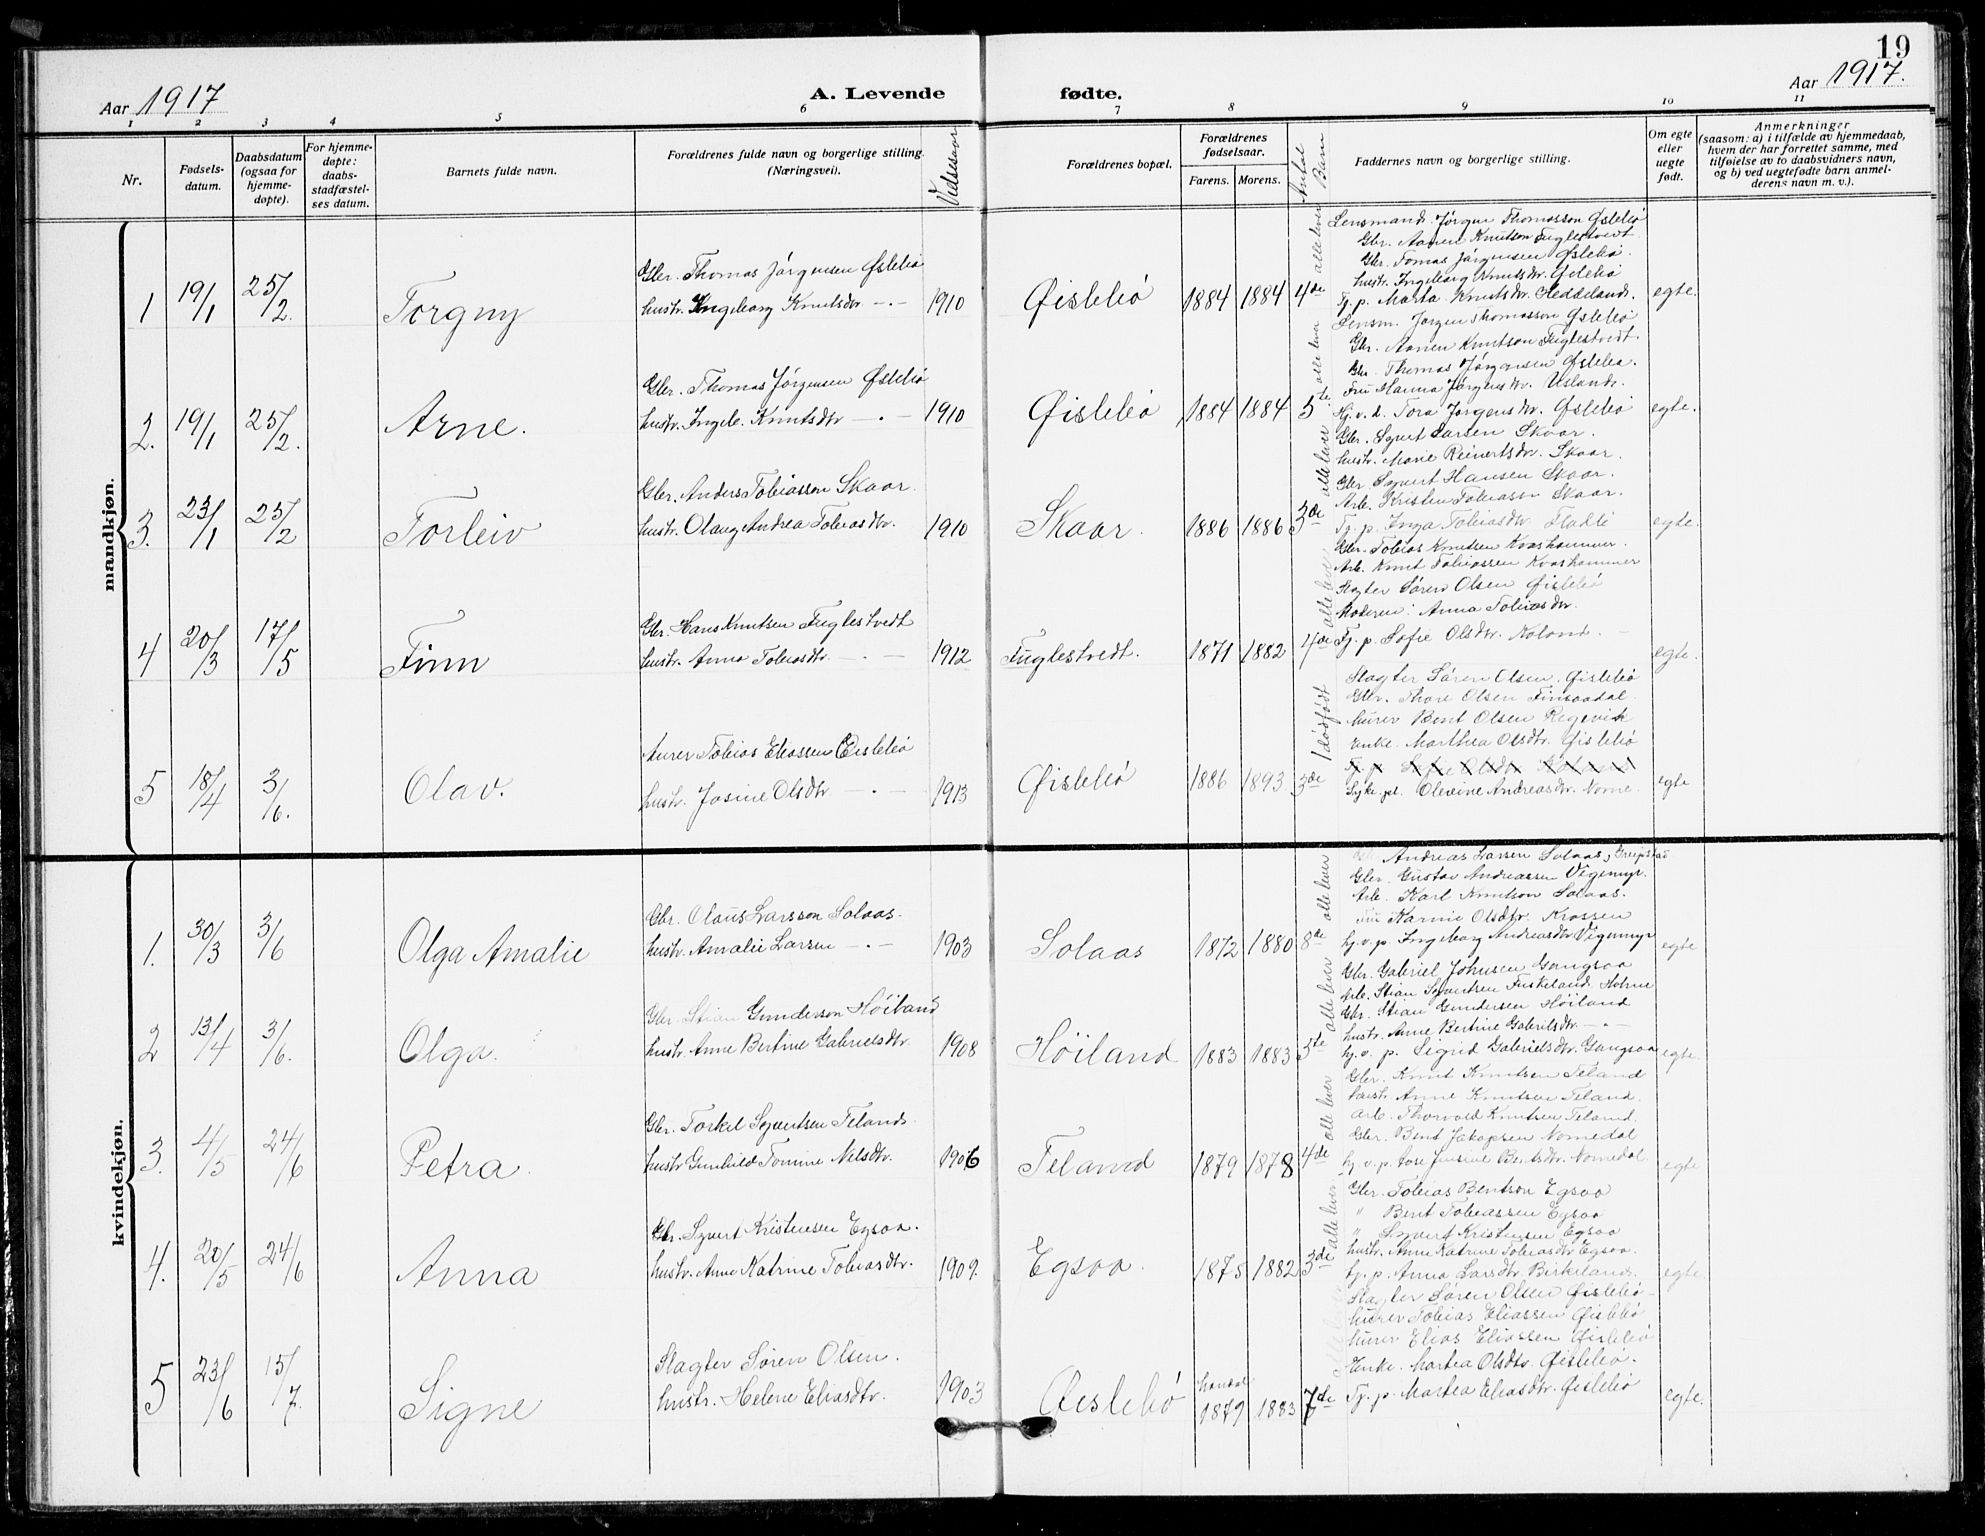 19
Aar 1917
A. Levende fødte.
Aar 1917.
1 2 3 4 5 6 7 8 9 10 11
Nr.
Fødsels-
datum.
Daabsdatum
(ogsaa for
hjemme-
døpte).
For hjemme-
døpte:
daabs-
stadfæstel-
ses datum.
Barnets fulde navn.
Forældrenes fulde navn og borgerlige stilling.
(Næringsvei).
Vielsesaar
Forældrenes bopæl.
Forældrenes
fødselsaar.
Farens. Morens.
Antal Barn
Faddernes navn og borgerlige stilling.
Om egte
eller
uegte
født.
Anmerkninger
(saasom: a) i tilfælde av hjemmedaab,
hvem der har forrettet samme, med
tilføielse av to daabsvidners navn,
og b) ved uegtefødte barn anmel-
derens navn m. v.).
mandkjøn.
1 19/1 25/2. Torgny
Gbr. Thomas Jørgensen Øslebø
hustr. Ingeborg Knutsdtr. -"-
1910 Øislebø 1884 1884 4de alle lever
Lensmand. Jørgen Thomasson Øslebø
Gbr. Aanen Knutson Fuglestvedt.
Gbr. Tomas Jørgensen Øslebø.
hustr. Ingeborg Knutsdtr. Øslebø
Tj. p. Marta Knutsdtr. Heddeland.
egte.
2. 19/1 25/2. Arne.
Gbr. Thomas Jørgensen Øslebø
hustr. Ingeb. Knutsdtr -"-
1910 Øislebø 1884 1884 5te alle lever
Lensm. Jørgen Thomasson Øslebø
Gbr. Aanen Knutson Fuglestvedt.
Gbr. Thomas Jørgensen Øslebø.
Fru Hanna Jørgensdtr. Usland.
Hj. v. d. Tora Jørgensdtr. Øslebø
egte.
3. 23/1 25/2 Torleiv
Gbr. Anders Tobiasson Skaar.
hustr. Olaug Andrea Tobiasdtr.
1910 Skaar. 1886 1886 3de alle lever
Gbr. Syvert Larsen Skaar.
hustr. Marie Reinertsdtr. Skaar.
Gbr Syvert Hansen Skaar.
Arb. Kristen Tobiason Skaar.
Tj. p. Inga Tobiasdtr.
egte.
4 20/3 17/5 Finn
Gbr. Hans Knutsen Fuglestvedt
hustr. Anna Tobiasdtr. -"-
1912 Fuglestvedt. 1871 1882 4de alle lever
Gbr. Tobias Knutsen Kvashammer.
Arb. Knut Tobiassen Kvashammer
Slagter Søren Olsen Øislebø
Moderen: Anna Tobiasdtr.
Tj. p. Sofie Olsdtr. Noland.
egte.
5 18/4 3/6. Olav.
Murer Tobias Eliassen Øeislebø
hustr. Josine Olsdtr -"-
1913 Øislebø 1886 1893 3de 1 dødfødt
Slagter Søren Olsen. Øislebø
Gbr. Thore Olsen Finsaadal.
Murer Bent Olsen Regevik
Enke. Marthea Olsdtr. Øislebø
Tj. p. Sofie Olsdtr. Noland
Syke.pl. Olevine Andreasdtr. Nome.
egte
kvindekjøn.
1. 30/3 3/6 Olga Amalie
Gbr. Olaus Larsson Solaas.
hustr. Amalie Larsen -"-
1903 Solaas 1872 1880 8de alle lever
Andreas Larsen Solaas, Greipstad
Gbr. Gustav Andreassen Vigemyr.
Arb. Karl Knutson Solaas.
Fru Karine Olsdtr. Krossen
hj. v. p. Ingeborg Andreasdtr Vigemyr
egte
2 13/4 3/6. Olga.
Gbr. Stian Gunderson Høiland
hustr. Anne Bertine Gabrielsdtr.
1908 Høiland 1883 1883 5te alle lever
Gbr. Gabriel Johnsen Gangsaa
Arb. Stian Syvertsen Fuskeland Holme
Gbr. Stian Gundersen Høiland
hustr. Anne Bertine Gabrielsdtr. -"-
hj. v. p. Sigrid Gabrielsdtr. Gangsaa
egte.
3. 4/5 24/6 Petra.
Gbr. Torkel Syvertsen Teland.
hustr Gunhild Tomine Nilsdtr.
1906 Teland 1879 1878 4de alle lever
Gbr. Knut Knutsen Teland
hustr. Anne Knutsen Teland.
Arb. Thorvald Knutsen Teland.
Gbr. Bent Jakobsen Nomedal
hj. v. p. Bentsdtr. Nomedal.
egte
4. 20/5 24/6 Anna
Gbr. Syvert Kristensen Egsaa.
hustr. Anne Katrine Tobiasdtr.
1909. Egsaa. 1875 1882 3de alle lever
Gbr. Tobias Bentson Egsaa
" Bent Tobiassen Egsaa
" Syvert Kristensen Egsaa
hustr. Anne Katrine Tobiasdtr Egsaa.
tj. p. Anna Larsdtr. Birkeland.
egte.
5 23/6 15/7. Signe
Slagter Søren Olsen.
hustr. Helene Eliasdtr.
1903 Øeislebø 1879 1883 7de
Slagter Søren Olsen Øislebø
Murer Tobias Eliassen Øislebø
Murer Elias Eliassen Øislebø
Enke. Martea Olsdtr. Øislebø.
Tj. p. Martea Eliasdtr. Øislebø
egte.